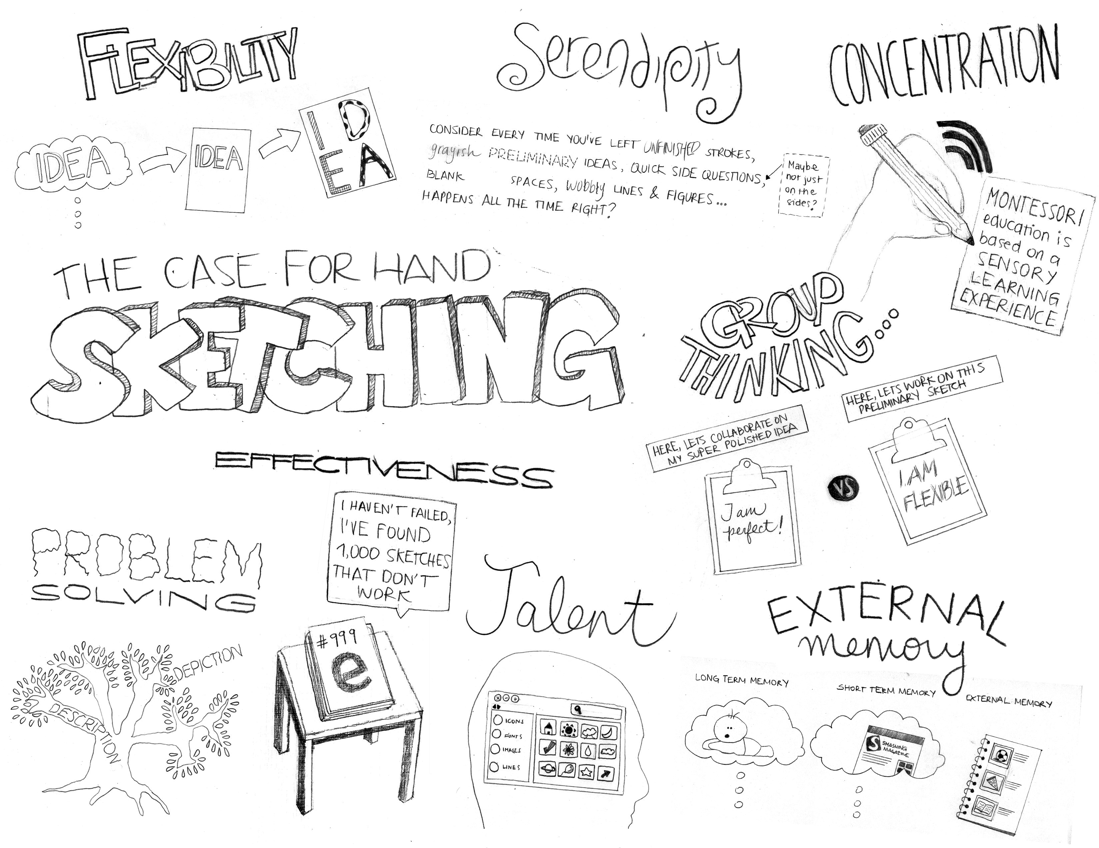 FLEXIBILITY
IDEA
IDEA
IDEA
Serendipity
CONSIDER EVERY TIME YOU'VE LEFT UNFINISHED STROKES,
grayish PRELIMINARY IDEAS, QUICK SIDE QUESTIONS,
BLANK SPACES, wobbly LINES & FIGURES...
HAPPENS ALL THE TIME RIGHT?
Maybe
not just
on the
sides?
CONCENTRATION
MONTESSORI
education is
based on a
SENSORY
LEARNING
EXPERIENCE
THE CASE FOR HAND
SKETCHING
GROUP
THINKING...
HERE, LETS COLLABORATE ON
MY SUPER POLISHED IDEA
I am
perfect!
VS
HERE, LETS WORK ON THIS
PRELIMINARY SKETCH
I AM
FLEXIBLE
EFFECTIVENESS
I HAVEN'T FAILED,
I'VE FOUND
1,000 SKETCHES
THAT DON'T
WORK
#999
e
PROBLEM
SOLVING
DESCRIPTION
DEPICTION
Talent
ICONS
FONTS
IMAGES
LINES
EXTERNAL
memory
LONG TERM MEMORY
SHORT TERM MEMORY
S SMASHING
MAGAZINE
EXTERNAL MEMORY